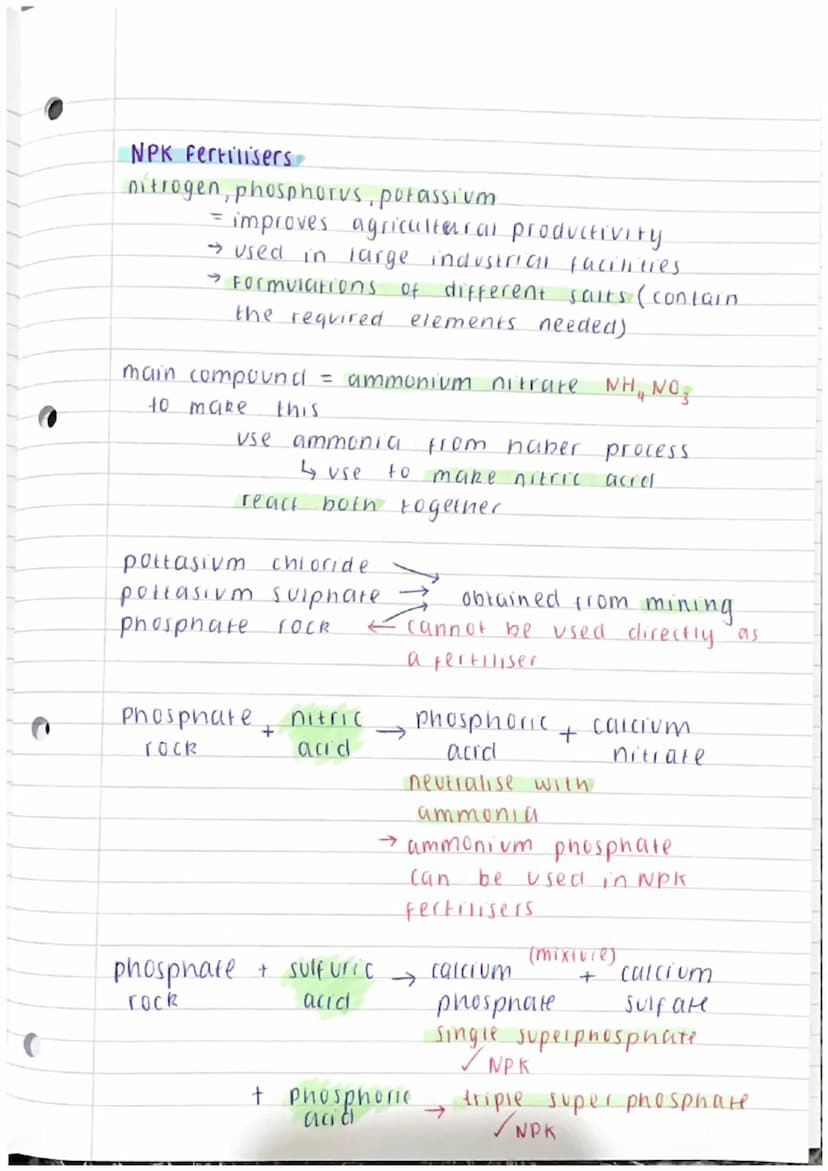 NPK fertilisers
nitrogen, phosphorus, potassium
= improves agricultural productivity
→ used in large industrial facilities
→ formulations of different salts (contain
the required elements needed)
main compound = ammonium nitrate NH₄NO₃
to make this
use ammonia from haber process
↳ use to make nitric acid
react both together
pottasium chloride
pottasium sulphate → obtained from mining
phosphate rock ← cannot be used directly as
a fertiliser
phosphate + nitric → phosphoric + calcium
rock acid acid nitrate
neutralise with
ammonia
→ ammonium phosphate
can be used in NPK
fertilisers
(mixture)
phosphate + sulfuric → calcium + calcium
rock acid phosphate sulfate
single superphosphate
✓ NPK
+ phosphoric → triple super phosphate
acid ✓ NPK